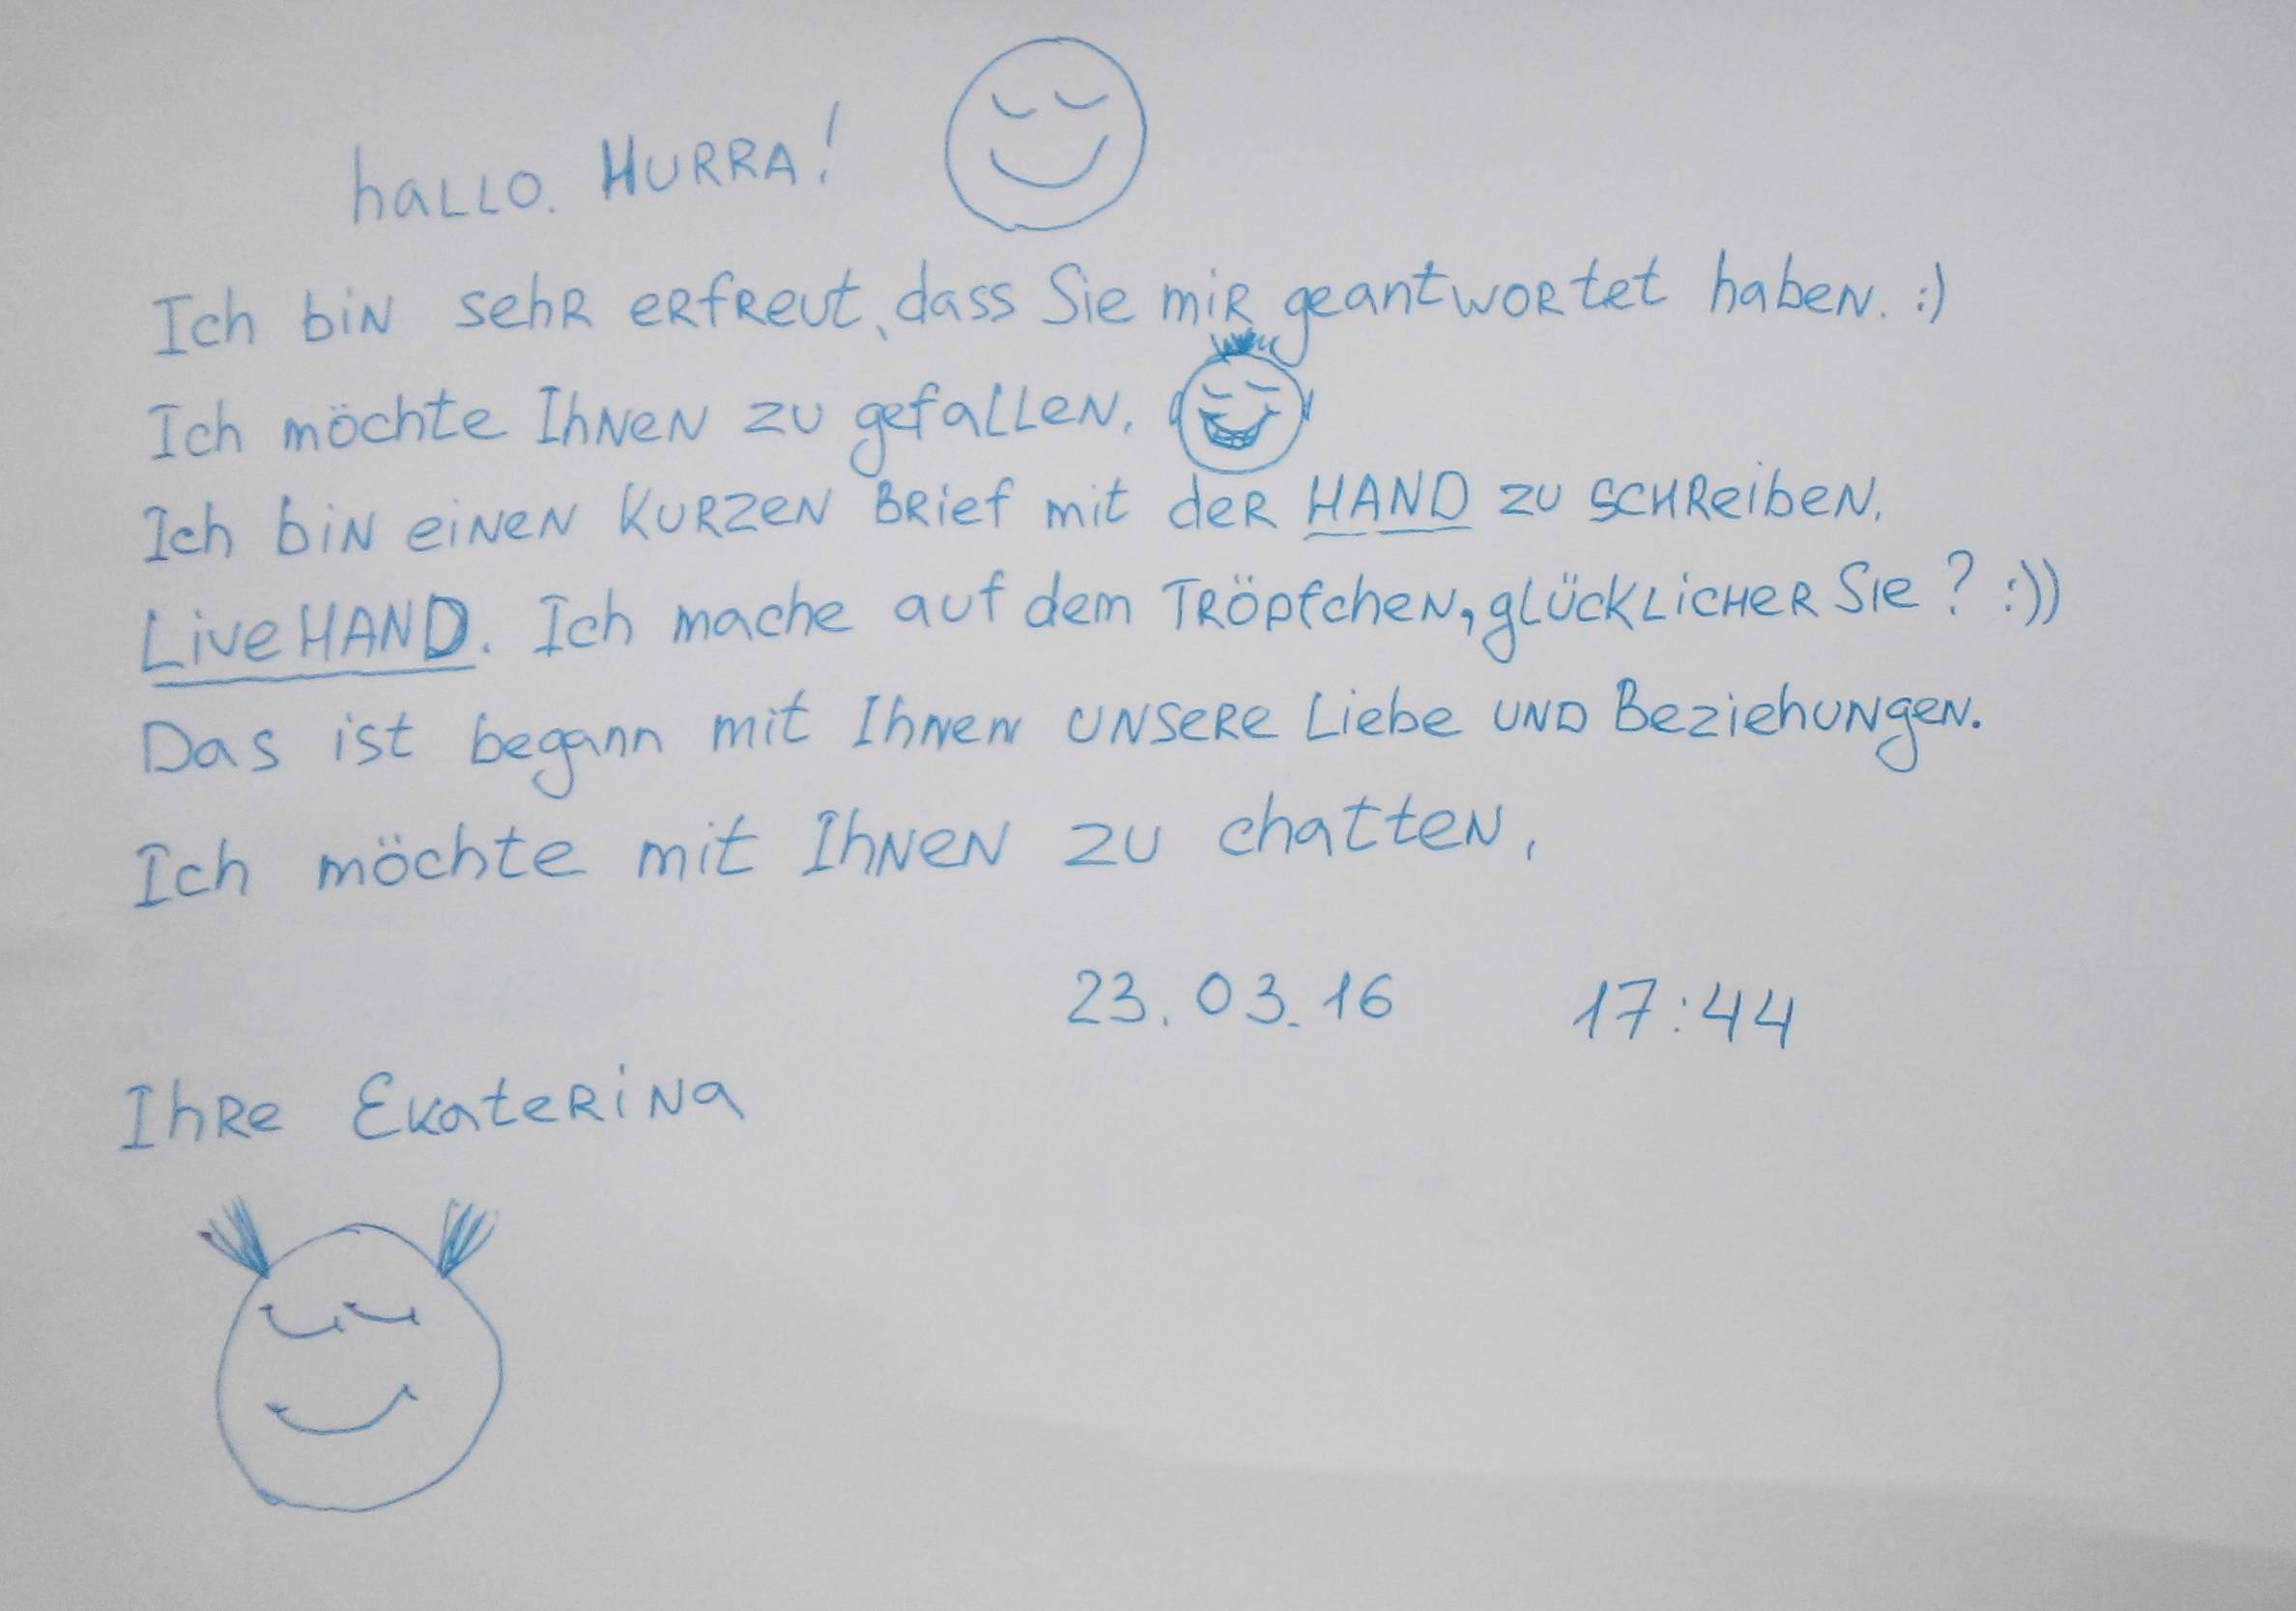 hallo. HURRA!
Ich bin sehr erfreut, dass Sie mir geantwortet haben. :)
Ich möchte Ihnen zu gefallen.
Ich bin einen kurzen Brief mit der HAND zu schreiben.
Live HAND. Ich mache auf dem Tröpfchen, glücklicher Sie? :))
Das ist begann mit Ihnen unsere Liebe und Beziehungen.
Ich möchte mit Ihnen zu chatten.
23.03.16 17:44
Ihre Ekaterina